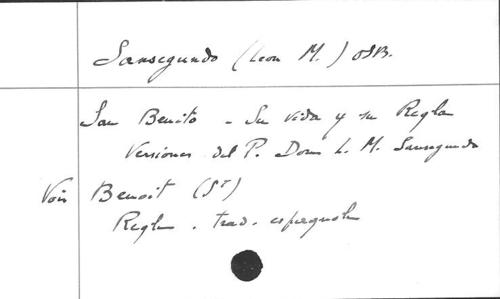 Sansegundo (Leon M.) OSB.
San Benito - Su vida y su Regla
Versiones del P. Dom L. M. Sansegundo
Voir Benoit (St)
Regle. trad. espagnole